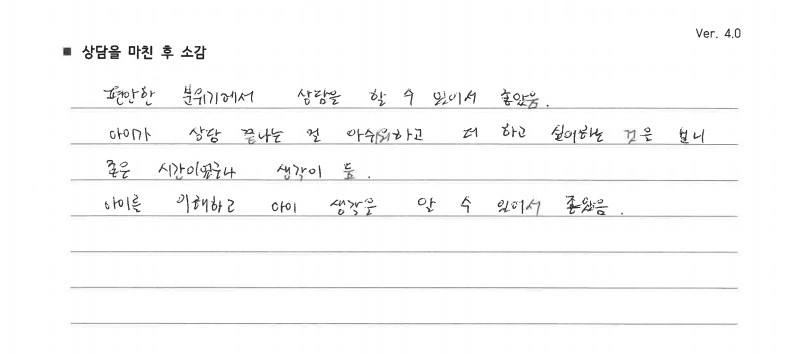 Ver. 4.0
■ 상담을 마친 후 소감
편안한 분위기에서 상담을 할 수 있어서 좋았음.
아이가 상담 끝나는 걸 아쉬워하고 더 하고 싶어하는 것을 보니
좋은 시간이었구나 생각이 듦.
아이를 이해하고 아이 생각을 알 수 있어서 좋았음.